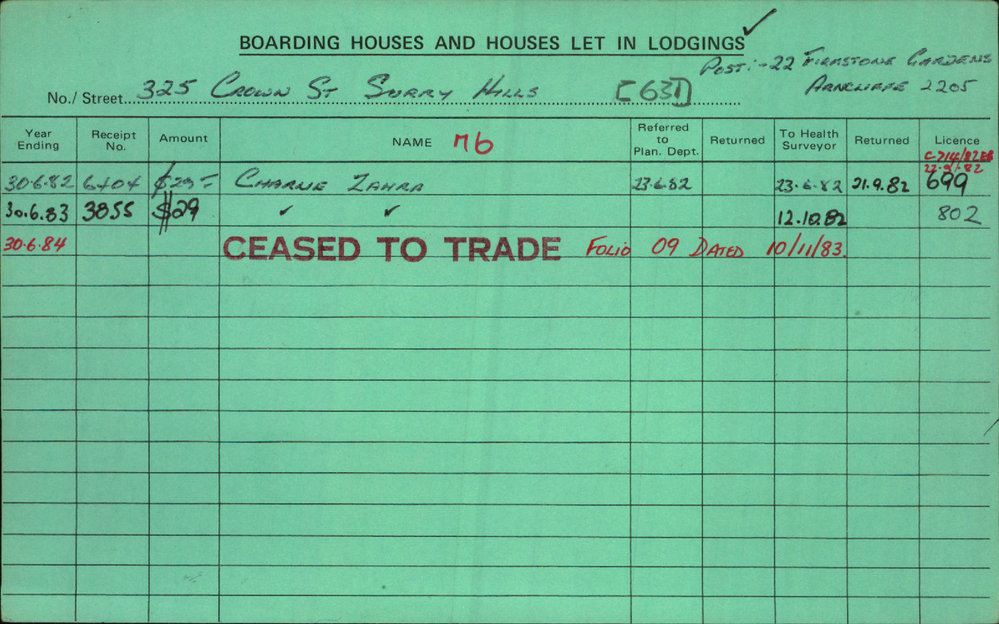 BOARDING HOUSES AND HOUSES LET IN LODGINGS ✓
Post:- 22 Firmstone Gardens
Arncliffe 2205
No./ Street 325 Crown St Surry Hills [631]
Year Ending Receipt No. Amount NAME 76 Referred to Plan. Dept. Returned To Health Surveyor Returned Licence
C714/82
22.9.82
30.6.82 6404 $29- Charlie Zahra 23.6.82 23.6.82 21.9.82 699
30.6.83 3855 $29 ✓ ✓ 12.10.82 802
30.6.84 CEASED TO TRADE Folio 09 Dated 10/11/83.